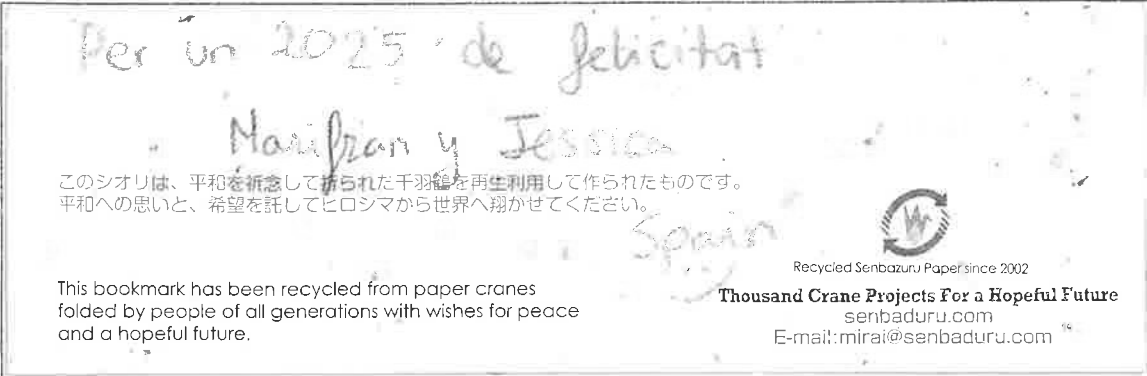 Per un 2025 de felicitat
Marifran y Jessica
このシオリは、平和を祈念して折られた千羽鶴を再生利用して作られたものです。
平和への思いと、希望を託してヒロシマから世界へ翔かせてください。
Spain
This bookmark has been recycled from paper cranes
folded by people of all generations with wishes for peace
and a hopeful future.
Recycled Senbazuru Paper since 2002
Thousand Crane Projects For a Hopeful Future
senbaduru.com
E-mail:mirai@senbaduru.com